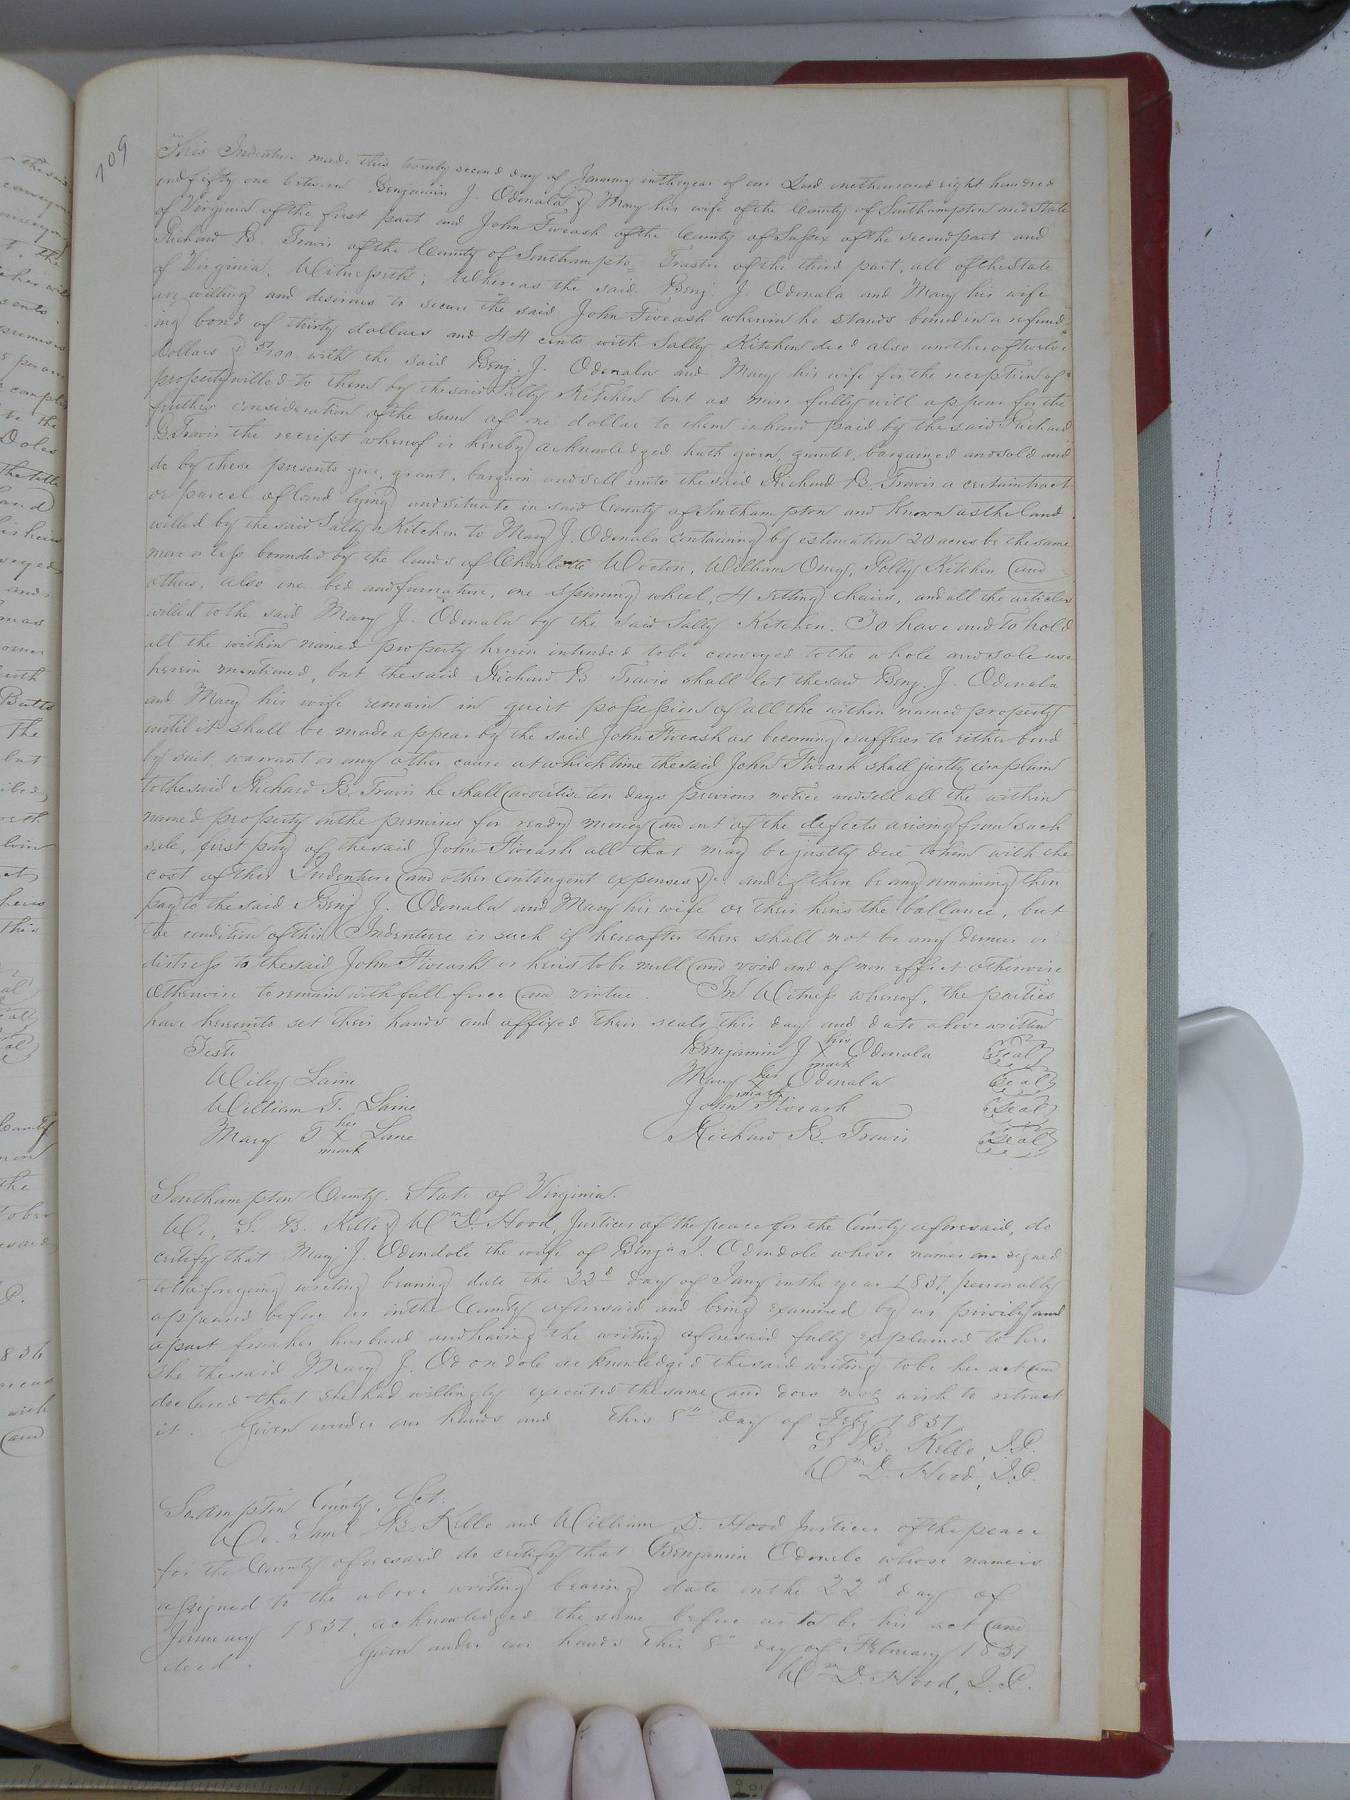 109
This Indenture made this twenty second day of January in the year of our Lord one thousand eight hundred
and fifty one between Benjamin J. Odonala & Mary his wife of the County of Southampton and State
of Virginia of the first part and John Fiveash of the County of Sussex of the second part and
Richard B. Travis of the County of Southampton Trustee of the third part, all of the State
of Virginia. Witnesseth; Whereas the said Benj. J. Odonala and Mary his wife
are willing and desirous to secure the said John Fiveash wherein he stands bound in a refund-
ing bond of thirty dollars and 44 cents with Sally Kitchen decd also another of twelve
dollars & with the said Benj. J. Odonala and Mary his wife for the reception of
property willed to them by the said Sally Kitchen but as more fully will appear for the
further consideration of the sum of one dollar to them in hand paid by the said Richard
B. Travis the receipt whereof is hereby acknowledged hath given, granted, bargained and sold and
do by these presents give, grant, bargain and sell unto the said Richard B. Travis a certain tract
or parcel of land lying and situate in said County of Southampton and known as the land
willed by the said Sally Kitchen to Mary J. Odonala containing by estimation 20 acres be the same
more or less bounded by the lands of Charlotte Wooton, William Omy, Polly Kitchen and
others, also one bed and furniture, one Spinning wheel, 4 setting chairs, and all the articles
willed to the said Mary J. Odonala by the said Sally Kitchen. To have and to hold
all the within named property herein intended to be conveyed to the whole and sole use
herein mentioned, but the said Richard B Travis shall let the said Benj. J. Odonala
and Mary his wife remain in quiet possession of all the within named property
until it shall be made appear by the said John Fiveash as becoming sufferer to either bond
by suit, warrant or any other cause at which time the said John Fiveash shall justly complain
to the said Richard B. Travis he shall advertise ten days previous notice and sell all the within
named property on the premises for ready money and out of the defects arising from such
sale, first pay of the said John Fiveash all that may be justly due to him with the
cost of this Indenture and other contingent expenses &c. and if then be any remaining then
pay to the said Benj J. Odonala and Mary his wife or their heirs the ballance, but
the condition of this Indenture is such if hereafter there shall not be any demur or
distress to the said John Fiveash or heirs to be null and void and of non effect otherwise
otherwise to remain with full force and virtue. In Witness whereof, the parties
have hereunto set their hands and affixed their seals this day and date above written
Teste Benjamin J his X mark Odonala (Seal)
Wiley Laine Mary her X mark Odonala (Seal)
William T. Laine John Fiveash (Seal)
Mary T her X mark Lane Richard B. Travis (Seal)
Southampton County. State of Virginia.
We, S. B. Kello & Wm D. Hood, Justices of the peace for the County aforesaid, do
certify that Mary J. Odondole the wife of Benja J. Odondole whose names are signed
to the foregoing writing bearing date the 22d day of Jany in the year 1851, personally
appeared before us in the County aforesaid and being examined by us privily and
apart from her husband and having the writing aforesaid fully explained to her
she the said Mary J. Odondole acknowledged the said writing to be her act and
declared that she had willingly executed the same and does not wish to retract
it. Given under our hands and this 8th day of Feby 1851.
S. B. Kello, J.P.
Wm D. Hood, J.P.
So.ampton County, Sct.
We. Saml B. Kello and William D. Hood Justices of the peace
for the County aforesaid do certify that Benjamin Odonele whose name is
assigned to the above writing bearing date on the 22d day of
January 1851, acknowledged the same before us to be his act and
deed. Given under our hands this 8th day of February 1851
Wm D. Hood, J.P.